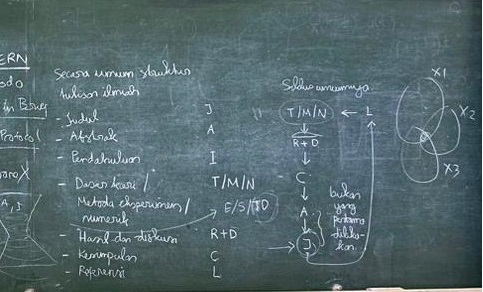 ERN
odo
Protocol
Secara umum struktur
tulisan ilmiah
- Judul J
- Abstrak A
- Pendahuluan I
- Dasar teori / T/M/N
Metoda eksperimen/ E/S/TD
numerik
- Hasil dan diskusi R+D
- Kesimpulan C
- Referensi L
Siklus umumnya
T/M/N ← L
R+D
C
A
J
bukan
yang
pertama
dilaku-
kan.
X1
X2
X3